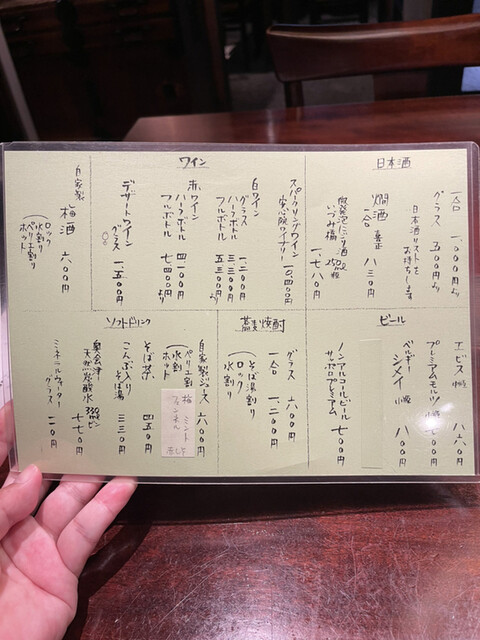 日本酒
一合 一、〇〇〇円より
グラス 五〇〇円より
日本酒リストを
お持ちします
燗酒 喜正
一合 八三〇円
微発泡にごり酒
いづみ橋 250ml瓶
一、七八〇円
ワイン
スパークリングワイン
安心院ワイナリー 一〇、四〇〇円
白ワイン
グラス 一、二〇〇円
ハーフボトル 三三〇〇円
フルボトル 五五〇〇円より
赤ワイン
ハーフボトル 四一〇〇円
フルボトル 七四〇〇円より
デザートワイン
グラス 一、五〇〇円
自家製
梅酒 六〇〇円
ロック
水割り
ペリエ割り
ホット
ビール
エビス 小瓶 八六〇円
プレミアムモルツ 小瓶 七〇〇円
ベルギー
シメイ 小瓶 八〇〇円
ノンアルコールビール
サッポロプレミアム 七〇〇円
蕎麦焼酎
グラス 六〇〇円
一合 一、二〇〇円
そば湯割り
ロック
水割り
ソフトドリンク
自家製ジュース 六〇〇円
ペリエ割
水割
ホット
梅 ミント
そば茶 四五〇円
こんぶ入り
そば湯 三三〇円
奥会津
天然炭酸水 瓶 七七〇円
ミネラルウォーター
グラス 一一〇円